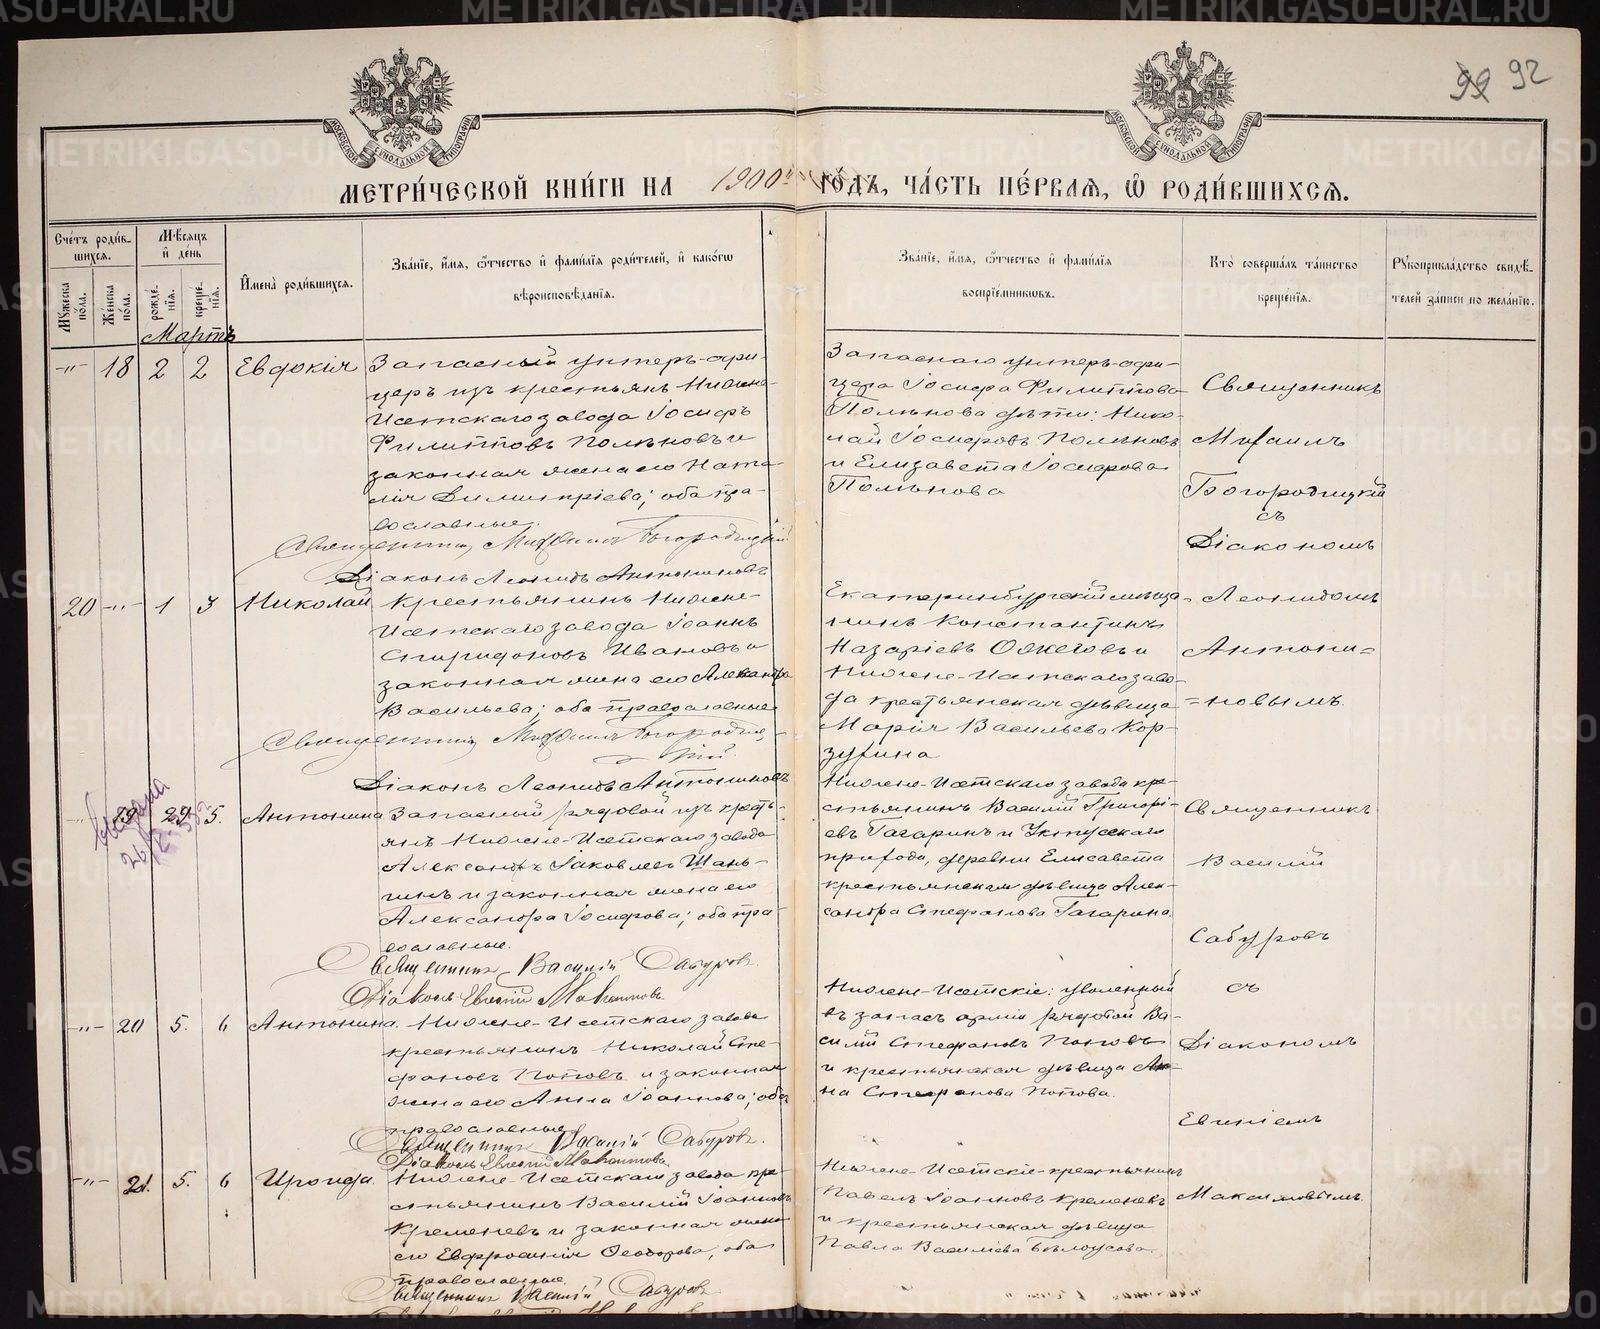 99 92
МОСКОВСКОЙ СѴНОДАЛЬНОЙ ТИПОГРАФІИ
МОСКОВСКОЙ СѴНОДАЛЬНОЙ ТИПОГРАФІИ
МЕТРИ́ЧЕСКОЙ КНИ́ГИ НА 1900й ГО́ДЪ, ЧА́СТЬ ПЕ́РВАѦ, Ѡ҆ РОДИ́ВШИХСѦ.
Сче́тъ роди́в-
шихсѧ.
Мꙋ́жеска по́ла.
Же́нска по́ла.
Мѣ́сѧцъ и҆ де́нь
рожде́нїѧ.
креще́нїѧ.
И҆мена̀ роди́вшихсѧ.
Зва́нїе, и҆́мѧ, ѻ҆́тчество и҆ фами́лїѧ роди́телей, и҆ како́гѡ
вѣроисповѣ́данїѧ.
Зва́нїе, и҆́мѧ, ѻ҆́тчество и҆ фами́лїѧ
воспрїе́мникѡвъ.
Кто̀ соверша́лъ та́инство
креще́нїѧ.
Рꙋкоприкла́дство свидѣ́-
телей за́писи по жела́нїю.
Мартъ
-"- 18 2 2 Евдокія
Запасный унтеръ-офи-
церъ изъ крестьянъ Нижне-
Исетскаго завода Іосифъ
Филипповъ Полѣновъ и
законная жена его Ната-
лія Димитріева; оба пра-
вославные.
Священникъ Михаилъ Богородицкій
Діаконъ Леонидъ Антониновъ
Запаснаго унтеръ-офи-
цера Іосифа Филиппова
Полѣнова дѣти: Нико-
лай Іосифовъ Полѣновъ
и Елизавета Іосифова
Полѣнова
Священникъ
Михаилъ
Богородицкій
съ
Діакономъ
Леонидомъ
Антони=
=новымъ.
20 -"- 1 3 Николай
Крестьянинъ Нижне-
Исетскаго завода Іоаннъ
Спиридоновъ Ивановъ и
законная жена его Александра
Васильева; оба православные
Священникъ Михаилъ Богородиц-
кій
Діаконъ Леонидъ Антониновъ
Екатеринбургскій мѣща-
нинъ Константинъ
Назаріевъ Ожеговъ и
Нижне-Исетскаго заво-
да крестьянская дѣвица
Марія Васильева Кор-
зухина
19 29 5. Антонина
26/12
Запасный рядовой изъ кресть-
янъ Нижне-Исетскаго завода
Александръ Іаковлев Шань-
гинъ и законная жена его
Александра Іосифова; оба пра-
вославные.
Священникъ Василій Сабуровъ.
Діаконъ Евгеній Максимовъ.
Нижне-Исетскаго завода кре-
стьянинъ Василій Григорі-
евъ Гагаринъ и Уктусскаго
прихода, деревни Елисавета
крестьянская дѣвица Алек-
сандра Стефанова Гагарина.
Священникъ
Василій
Сабуровъ
съ
Діакономъ
Евгеніемъ
Максимовымъ.
-"- 20 5. 6 Антонина.
Нижне-Исетскаго завода
крестьянинъ Николай Сте-
фановъ Поповъ и законная
жена его Анна Іоаннова; оба
православные.
Священникъ Василій Сабуровъ.
Діаконъ Евгеній Максимовъ.
Нижне-Исетскіе: уволенный
въ запасъ арміи рядовой Ва-
силій Стефановъ Поповъ
и крестьянская дѣвица Ан-
на Стефанова Попова.
-"- 21. 5. 6 Ираида.
Нижне-Исетскаго завода кре-
стьянинъ Василій Іоанновъ
Кременевъ и законная жена
его Евфросинія Ѳеодорова, оба
православные.
Священникъ Василій Сабуровъ
Нижне-Исетскіе крестьянинъ
Павелъ Іоанновъ Кременевъ
и крестьянская дѣвица
Павла Василіева Бѣлоусова.
METRIKI.GASO-URAL.RU